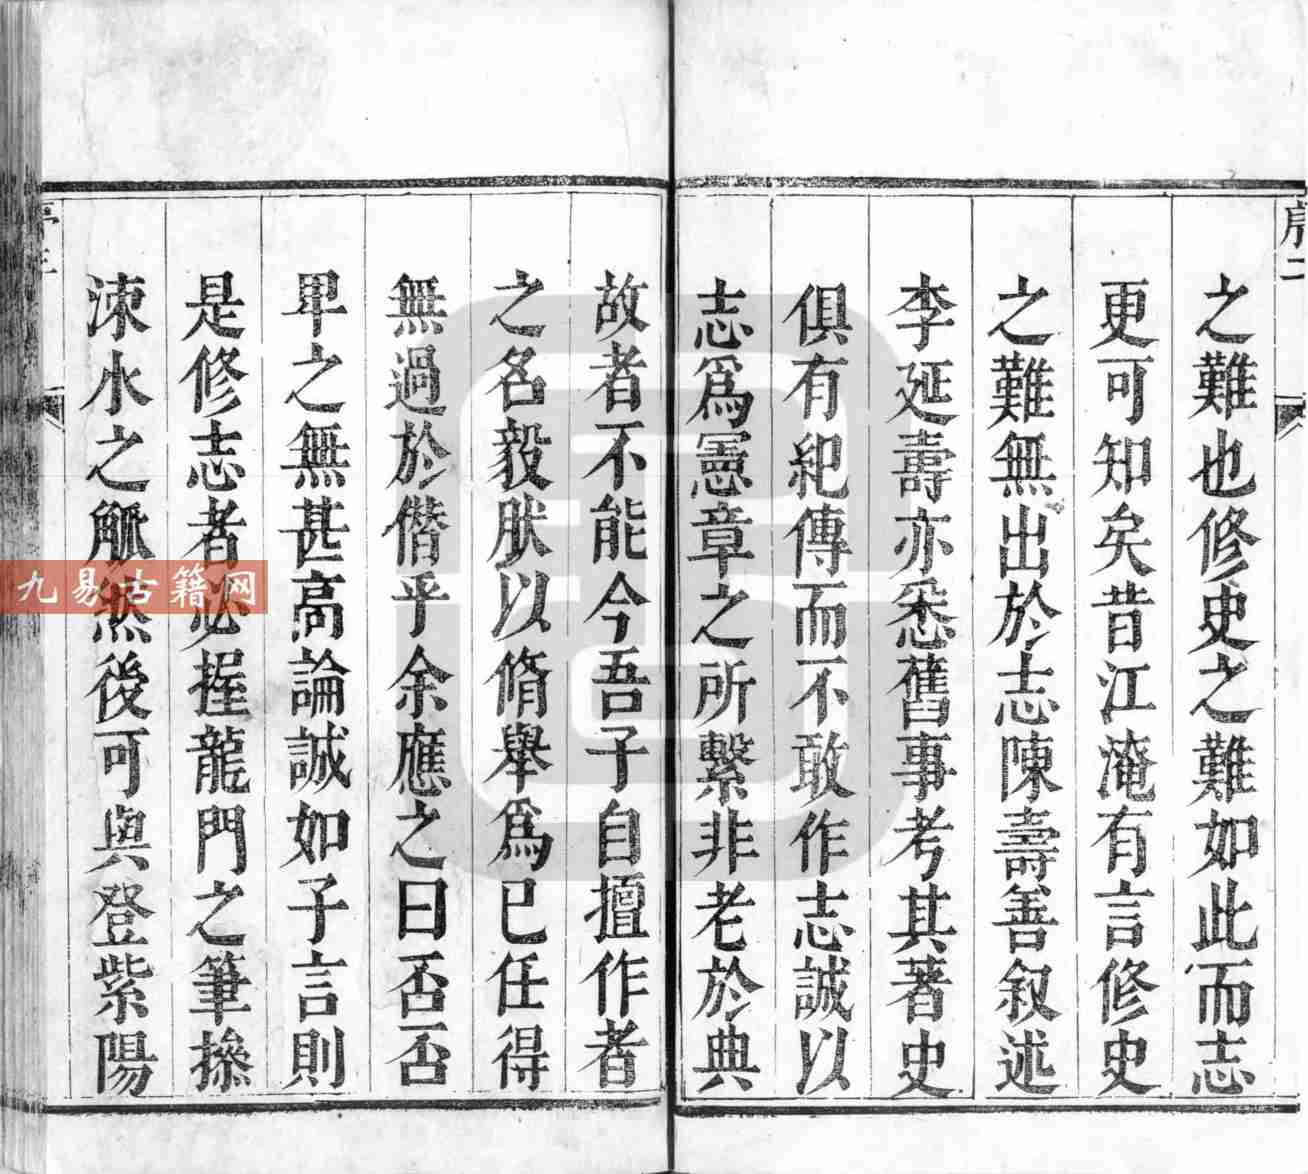 序二
之難也修史之難如此而志
更可知矣昔江淹有言修史
之難無出於志陳壽善叙述
李延壽亦悉舊事考其著史
俱有紀傳而不敢作志誠以
志爲憲章之所繫非老於典
故者不能今吾子自擅作者
之名毅肰以脩舉爲已任得
無過於僭乎余應之曰否否
卑之無甚高論誠如子言則
是修志者必握龍門之筆操
涑水之觚然後可與登紫陽
九易古籍网